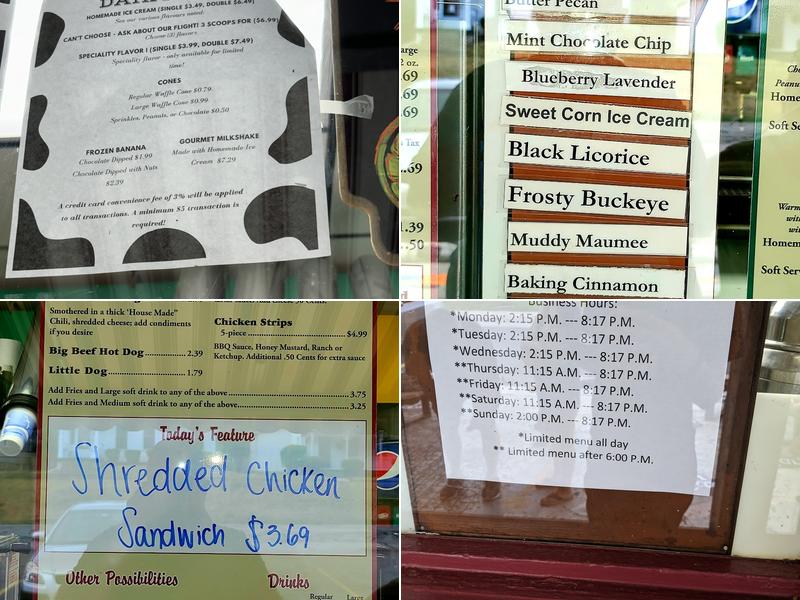 HOMEMADE ICE CREAM (SINGLE $3.49, DOUBLE $6.49)
See our various flavours noted:
CAN'T CHOOSE - ASK ABOUT OUR FLIGHT! 3 SCOOPS FOR ($6.99)
Choose (3) flavors
SPECIALITY FLAVOR ! (SINGLE $3.99, DOUBLE $7.49)
Speciality flavor - only available for limited
time!
CONES
Regular Waffle Cone $0.79
Large Waffle Cone $0.99
Sprinkles, Peanuts, or Chocolate $0.50
FROZEN BANANA
Chocolate Dipped $1.99
Chocolate Dipped with Nuts
$2.39
GOURMET MILKSHAKE
Made with Homemade Ice
Cream $7.29
A credit card convenience fee of 3% will be applied
to all transactions. A minimum $5 transaction is
required!
Butter Pecan
Mint Chocolate Chip
Blueberry Lavender
Sweet Corn Ice Cream
Black Licorice
Frosty Buckeye
Muddy Maumee
Baking Cinnamon
2 oz.
.69
.69
Tax
.69
1.39
.50
Homem
Soft Se
Homem
Soft Serv
Smothered in a thick 'House Made"
Chili, shredded cheese; add condiments
if you desire
Big Beef Hot Dog 2.39
Little Dog 1.79
Chicken Strips
5-piece $4.99
BBQ Sauce, Honey Mustard, Ranch or
Ketchup. Additional .50 Cents for extra sauce
Add Fries and Large soft drink to any of the above 3.75
Add Fries and Medium soft drink to any of the above 3.25
Today's Feature
Shredded Chicken
Sandwich $3.69
Other Possibilities
Drinks
Regular Large
Business Hours:
*Monday: 2:15 P.M. --- 8:17 P.M.
*Tuesday: 2:15 P.M. --- 8:17 P.M.
*Wednesday: 2:15 P.M. --- 8:17 P.M.
**Thursday: 11:15 A.M. --- 8:17 P.M.
**Friday: 11:15 A.M. --- 8:17 P.M.
**Saturday: 11:15 A.M. --- 8:17 P.M.
**Sunday: 2:00 P.M. --- 8:17 P.M.
*Limited menu all day
** Limited menu after 6:00 P.M.